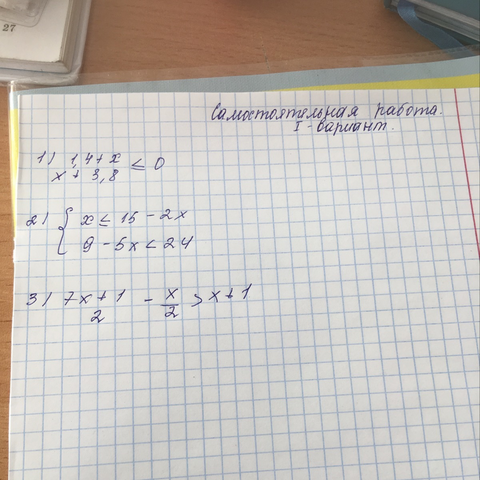 27
Самостоятельная работа.
I - вариант.
1) 1,4+x
x + 3,8 ≤ 0
2) { x ≤ 15 - 2x
9 - 5x < 24
3) 7x + 1 - x > x + 1
2 2